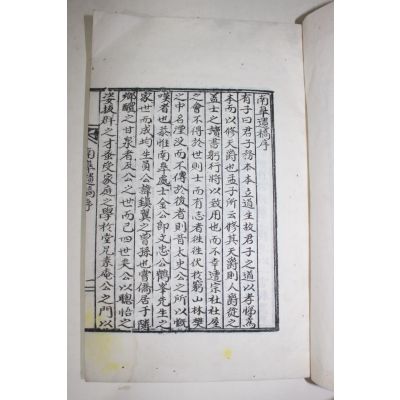 南皐遺稿序
有子曰君子務本本立道生故君子之道以孝悌爲
本而以修天爵也孟子所云修其天爵則人爵從之
孟士之讀書躬行將以致用也而不幸遭宗社社屋
之會不得於世則士而有志者往往伏於窮山林樊
之中名湮没而不傳於後者則昔太史公之所以慨
嘆者也恭惟南皐處士金公卽文忠公鶴峯先生之
家世而成均生員公諱鎭翼之曾孫也嘗僑居于隣
鄉醴之甘泉者及公之世而已四世矣公以聰悟之
姿拔群之才並受家庭之學於堂兄素庵公之門以
南皐遺稿序
一